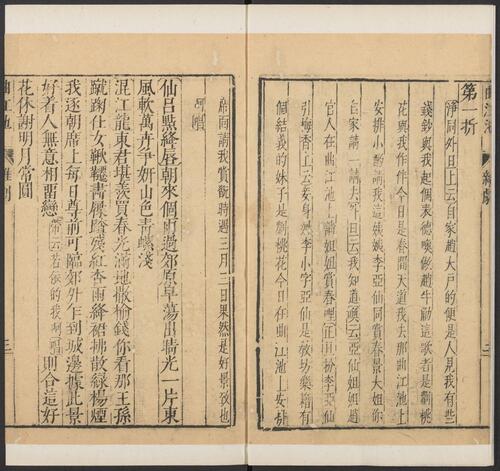 曲江池 雜劇 二
第一折
淨同外旦上云自家趙大戶的便是人見我有些
錢鈔與我起個表德喚做趙牛觔這歌者是劉桃
花與我作伴今日是春間天道我去那曲江池上
安排小酌請我這姨姨李亞仙同賞春景大姐你
自家請一請去外旦云我知道喚云亞仙姐姐趙
官人在曲江池上請姐姐賞春哩正旦扮李亞仙
引梅香上云妾身姓李小字亞仙是教坊樂籍有
個結義的妹子是劉桃花今日在曲江池上安排
席面請我賞翫時遇三月三日果然是好景致也
呵唱
仙呂點絳唇朝來個雨過郊原草蕩出晴光一片東
風軟萬卉爭妍山色青螺淺
混江龍東君堪羨買春光滿地散榆錢你看那王孫
蹴踘仕女鞦韆畫屧踏殘紅杏雨絳裙拂散綠楊煙
我逐朝席上每日尊前可臨郊外乍到城邊據此景
好着人無意相留戀帶云若依的我啊唱則合這好
花休謝明月常圓
曲江池 雜劇 三